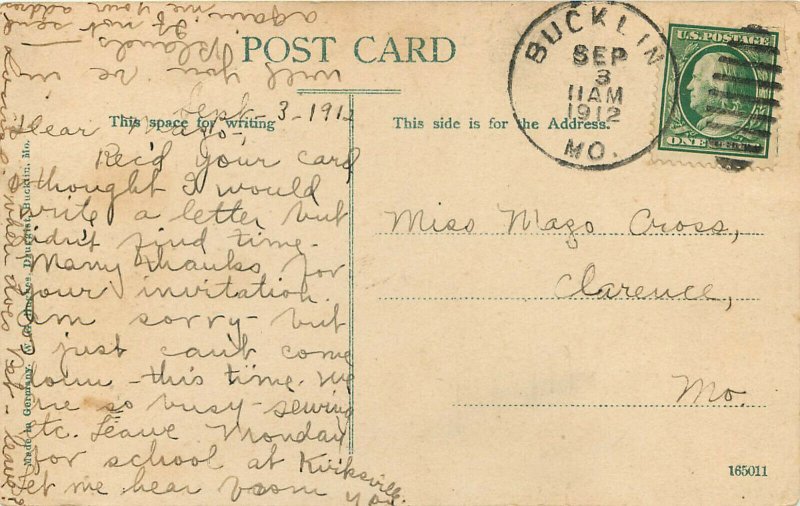 POST CARD
This space for writing
This side is for the Address.
BUCKLIN
SEP
3
11 AM
1912
MO.
U.S. POSTAGE
ONE
Sept - 3 - 1912
Dear Mazo,
Rec'd your card
thought I would
write a letter but
didn't find time.
Many thanks for
your invitation.
am sorry - but
I just can't come
down - this time. We
are so busy - sewing
etc. Leave Monday
for school at Kirksville.
Let me hear from you
again
will you be in
If not send
me your address
when does
Miss Mazo Cross,
Clarence,
Mo.
Made in Germany. Druggist, Bucklin, Mo.
165011